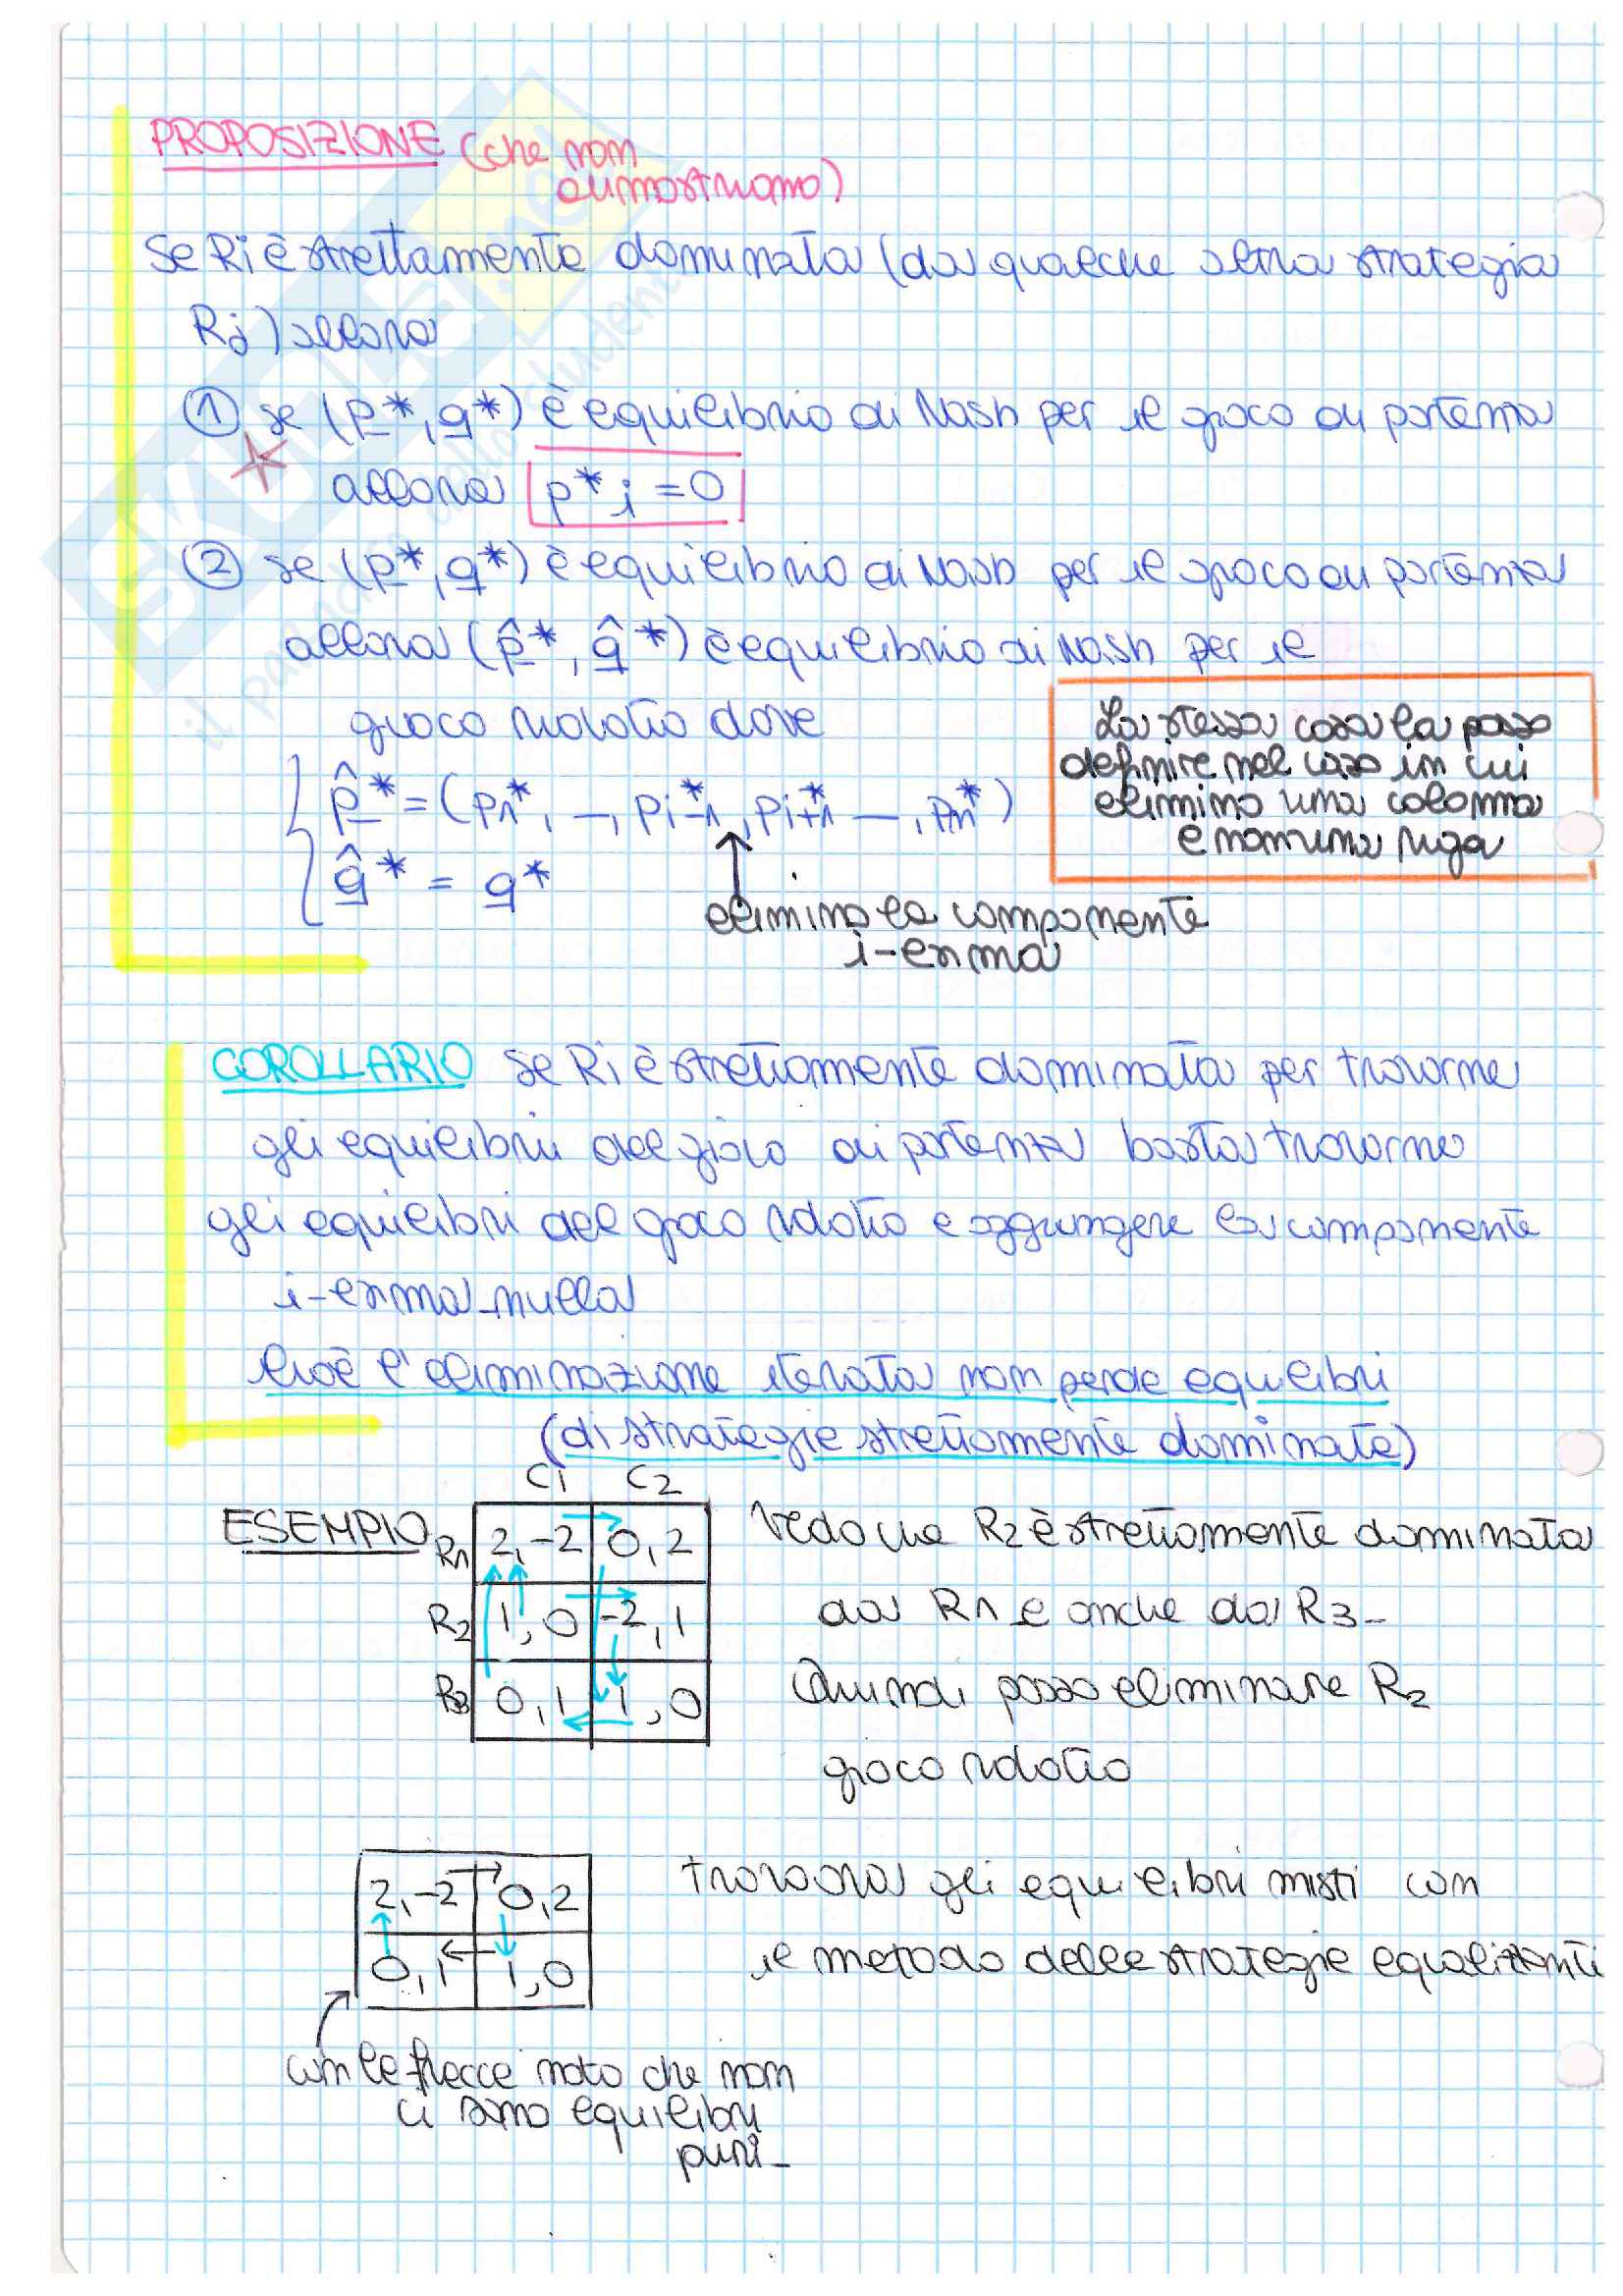 PROPOSIZIONE (che non
dimostriamo)
Se Ri è strettamente dominata (da qualche altra strategia
Rj) allora
① se (p*, q*) è equilibrio di Nash per il gioco di partenza
allora p*i = 0
② se (p*, q*) è equilibrio di Nash per il gioco di partenza
allora (p̂*, q̂*) è equilibrio di Nash per il
gioco ridotto dove
p̂* = (p1*, –, pi-1*, pi+1* –, pn*)
q̂* = q*
elimino la componente
i-esima
La stessa cosa la posso
definire nel caso in cui
elimino una colonna
e non una riga
COROLLARIO Se Ri è strettamente dominata per trovarne
gli equilibri del gioco di partenza basta trovarne
gli equilibri del gioco ridotto e aggiungere la componente
i-esima nulla
Cioè l'eliminazione iterata non perde equilibri
(di strategie strettamente dominate)
C1 C2
ESEMPIO R1 2,-2 0,2
R2 1,0 -2,1
R3 0,1 1,0
Vedo che R2 è strettamente dominata
da R1 e anche da R3-
Quindi posso eliminare R2
gioco ridotto
2,-2 0,2
0,1 1,0
trovo ora gli equilibri misti con
il metodo delle strategie equalizzanti
con le frecce noto che non
ci sono equilibri
puri-
SKUOLA.net
il paradiso dello studente